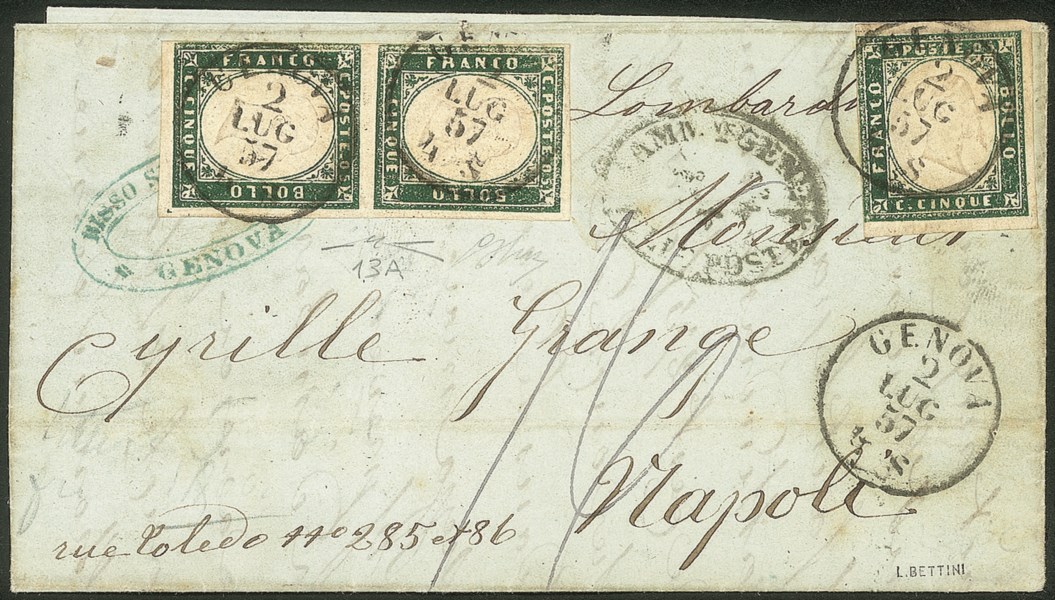 FRANCO
C. POSTE
BOLLO
C. CINQUE
2
LUG
57
FRANCO
C. POSTE
BOLLO
C. CINQUE
LUG
57
POSTE
FRANCO
BOLLO
C. CINQUE
2
LUG
57
GENOVA
13A
Monsieur
Cyrille Grange
GENOVA
2
LUG
57
Napoli
rue Toledo nº 285 et 86
L. BETTINI